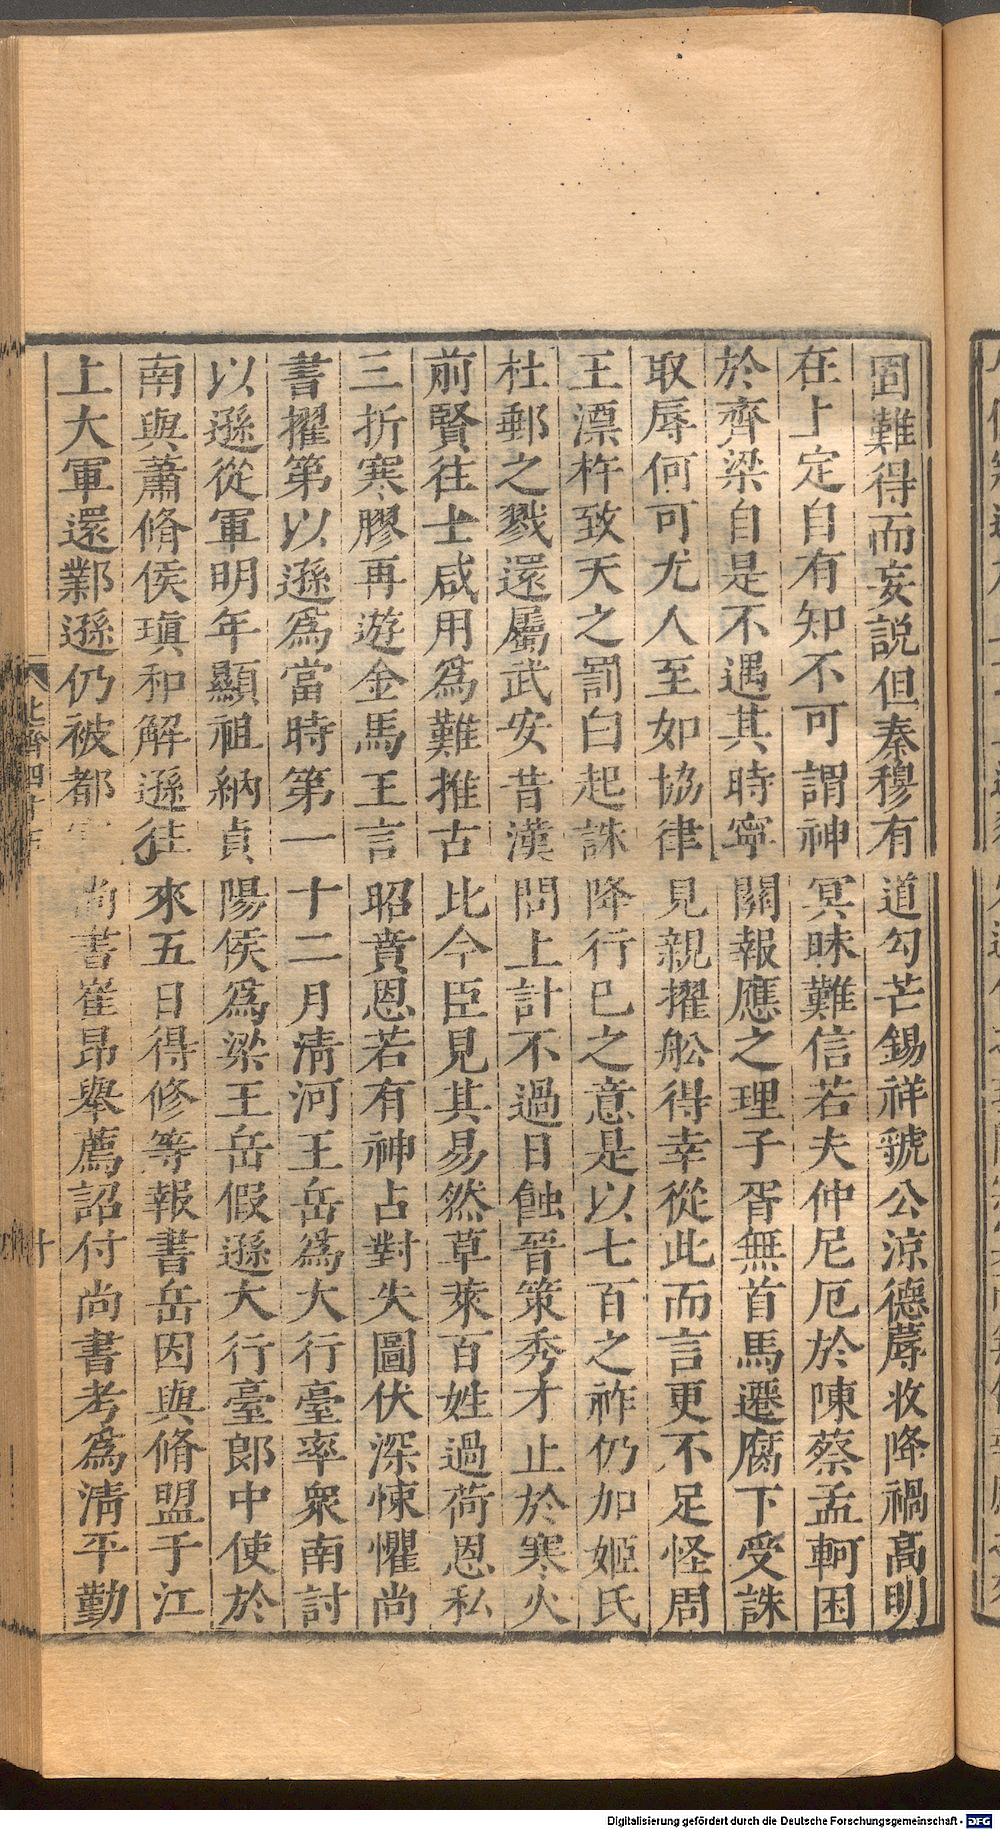 罔難得而妄說但秦穆有道勾芒錫祥虢公涼德蓐收降禍高明
在上定自有知不可謂神冥昧難信若夫仲尼厄於陳蔡孟軻困
於齊梁自是不遇其時寧關報應之理子胥無首馬遷腐下受誅
取辱何可尤人至如協律見親擢舩得幸從此而言更不足怪周
王漂杵致天之罰白起誅降行已之意是以七百之祚仍加姬氏
杜郵之戮還屬武安昔漢問上計不過日蝕晉策秀才止於寒火
前賢往士咸用為難推古比今臣見其易然草萊百姓過荷恩私
三折寒膠再遊金馬王言昭賁恩若有神占對失圖伏深悚懼尚
書擢第以遜為當時第一十二月清河王岳為大行臺率衆南討
以遜從軍明年顯祖納貞陽侯為梁王岳假遜大行臺郎中使於
南與蕭脩侯瑱和解遜往來五日得修等報書岳因與脩盟于江
上大軍還鄴遜仍被都官尚書崔昂舉薦詔付尚書考為清平勤
北齊四十五
十
Digitalisierung gefördert durch die Deutsche Forschungsgemeinschaft - DFG